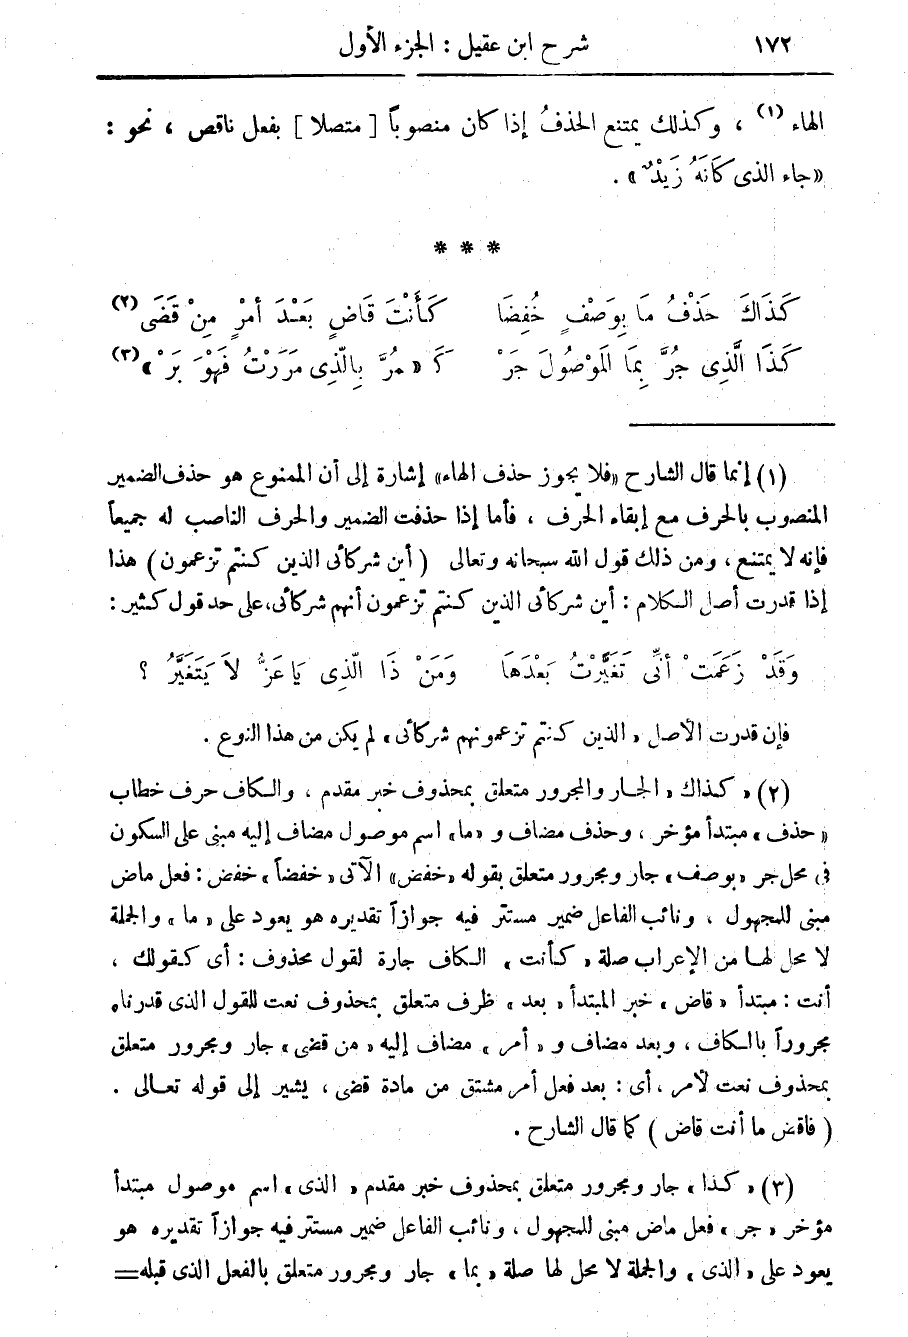 ١٧٢ شرح ابن عقيل : الجزء الأول
الهاء (١) ، وكذلك يمتنع الحذفُ إذا كان منصوباً [ متصلا ] بفعل ناقص ، نحو :
«جاء الذى كَانَهُ زَيْدٌ» .
* * *
كَذَاكَ حَذْفُ مَا بِوَصْفٍ خُفِضَا كَأَنْتَ قَاضٍ بَعْدَ أَمْرٍ مِنْ قَضَى (٢)
كَذَا الَّذِى جُرَّ بِمَا المَوْصُولَ جَرْ كَـ « مُرَّ بِالَّذِى مَرَرْتُ فَهْوَ بَرْ » (٣)
(١) إنما قال الشارح «فلا يجوز حذف الهاء» إشارة إلى أن الممنوع هو حذف الضمير
المنصوب بالحرف مع إبقاء الحرف ، فأما إذا حذفت الضمير والحرف الناصب له جميعاً
فإنه لا يمتنع ، ومن ذلك قول الله سبحانه وتعالى ( أين شركائى الذين كنتم تزعمون ) هذا
إذا قدرت أصل الكلام : أين شركائى الذين كنتم تزعمون أنهم شركائى، على حد قول كثير :
وَقَدْ زَعَمَتْ أَنِّى تَغَيَّرْتُ بَعْدَهَا وَمَنْ ذَا الَّذِى يَا عَزُّ لَا يَتَغَيَّرُ ؟
فإن قدرت الأصل « الذين كنتم تزعمونهم شركائى » لم يكن من هذا النوع .
(٢) « كذاك » الجار والمجرور متعلق بمحذوف خبر مقدم ، والكاف حرف خطاب
« حذف » مبتدأ مؤخر ، وحذف مضاف و « ما » اسم موصول مضاف إليه مبنى على السكون
فى محل جر « بوصف » جار ومجرور متعلق بقوله « خفض » الآتى « خفضاً » خفض : فعل ماض
مبنى للمجهول ، ونائب الفاعل ضمير مستتر فيه جوازاً تقديره هو يعود على « ما » والجملة
لا محل لها من الإعراب صلة « كأنت » الكاف جارة لقول محذوف : أى كقولك ،
أنت : مبتدأ « قاض » خبر المبتدأ « بعد » ظرف متعلق بمحذوف نعت للقول الذى قدرناه
مجروراً بالكاف ، وبعد مضاف و « أمر » مضاف إليه « من قضى » جار ومجرور متعلق
بمحذوف نعت لأمر ، أى : بعد فعل أمر مشتق من مادة قضى ، يشير إلى قوله تعالى .
( فاقض ما أنت قاض ) كما قال الشارح .
(٣) « كذا » جار ومجرور متعلق بمحذوف خبر مقدم « الذى » اسم موصول مبتدأ
مؤخر « جر » فعل ماض مبنى للمجهول ، ونائب الفاعل ضمير مستتر فيه جوازاً تقديره هو
يعود على « الذى » والجملة لا محل لها صلة « بما » جار ومجرور متعلق بالفعل الذى قبله=